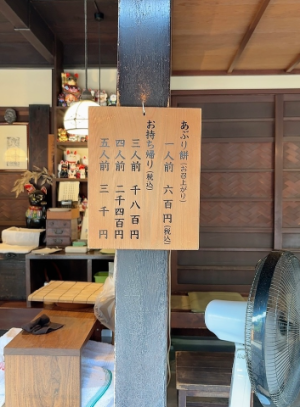 あぶり餅(お召上がり)
一人前 六百円(税込)
お持ち帰り(税込)
三人前 千八百円
四人前 二千四百円
五人前 三千円